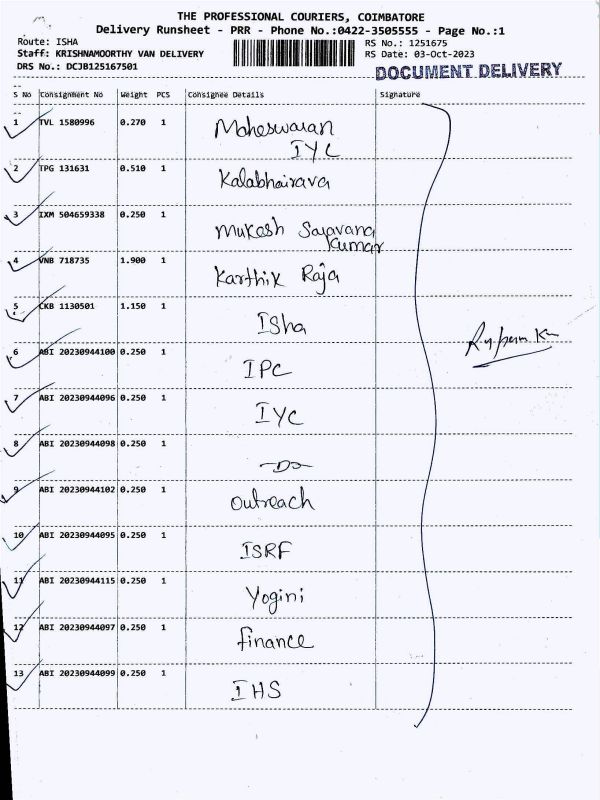 THE PROFESSIONAL COURIERS, COIMBATORE
Delivery Runsheet - PRR - Phone No.:0422-3505555 - Page No.:1
Route: ISHA RS No.: 1251675
Staff: KRISHNAMOORTHY VAN DELIVERY RS Date: 03-Oct-2023
DRS No.: DCJB125167501 DOCUMENT DELIVERY
S No Consignment No Weight PCS Consignee Details Signature
1 TVL 1580996 0.270 1 Maheswaran
IYC
2 TPG 131631 0.510 1 Kalabhairava
3 IXM 504659338 0.250 1 Mukesh Saravana
Kumar
4 VNB 718735 1.900 1 Karthik Raja
5 CKB 1130501 1.150 1 Isha
6 ABI 20230944100 0.250 1 IPC
7 ABI 20230944096 0.250 1 IYC
8 ABI 20230944098 0.250 1 -Do-
9 ABI 20230944102 0.250 1 Outreach
10 ABI 20230944095 0.250 1 ISRF
11 ABI 20230944115 0.250 1 Yogini
12 ABI 20230944097 0.250 1 finance
13 ABI 20230944099 0.250 1 IHS